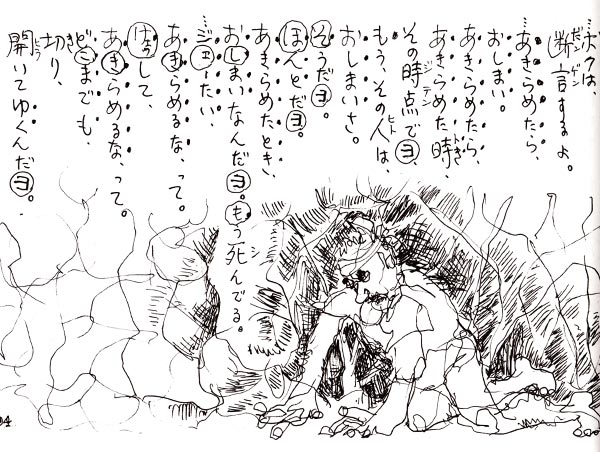 …ボクは、
断言するよ。
…あきらめたら、
おしまい。
あきらめたら、
あきらめた時、
その時点でヨ、
もう、その人は、
おしまいさ。
そうだヨ。
ほんとだヨ。
あきらめたとき、
おしまいなんだヨ。もう死んでる。
たい、
あきらめるな、って。
けっして、
あきらめるな、って。
どこまでも、
切り、
開いてゆくんだヨ。